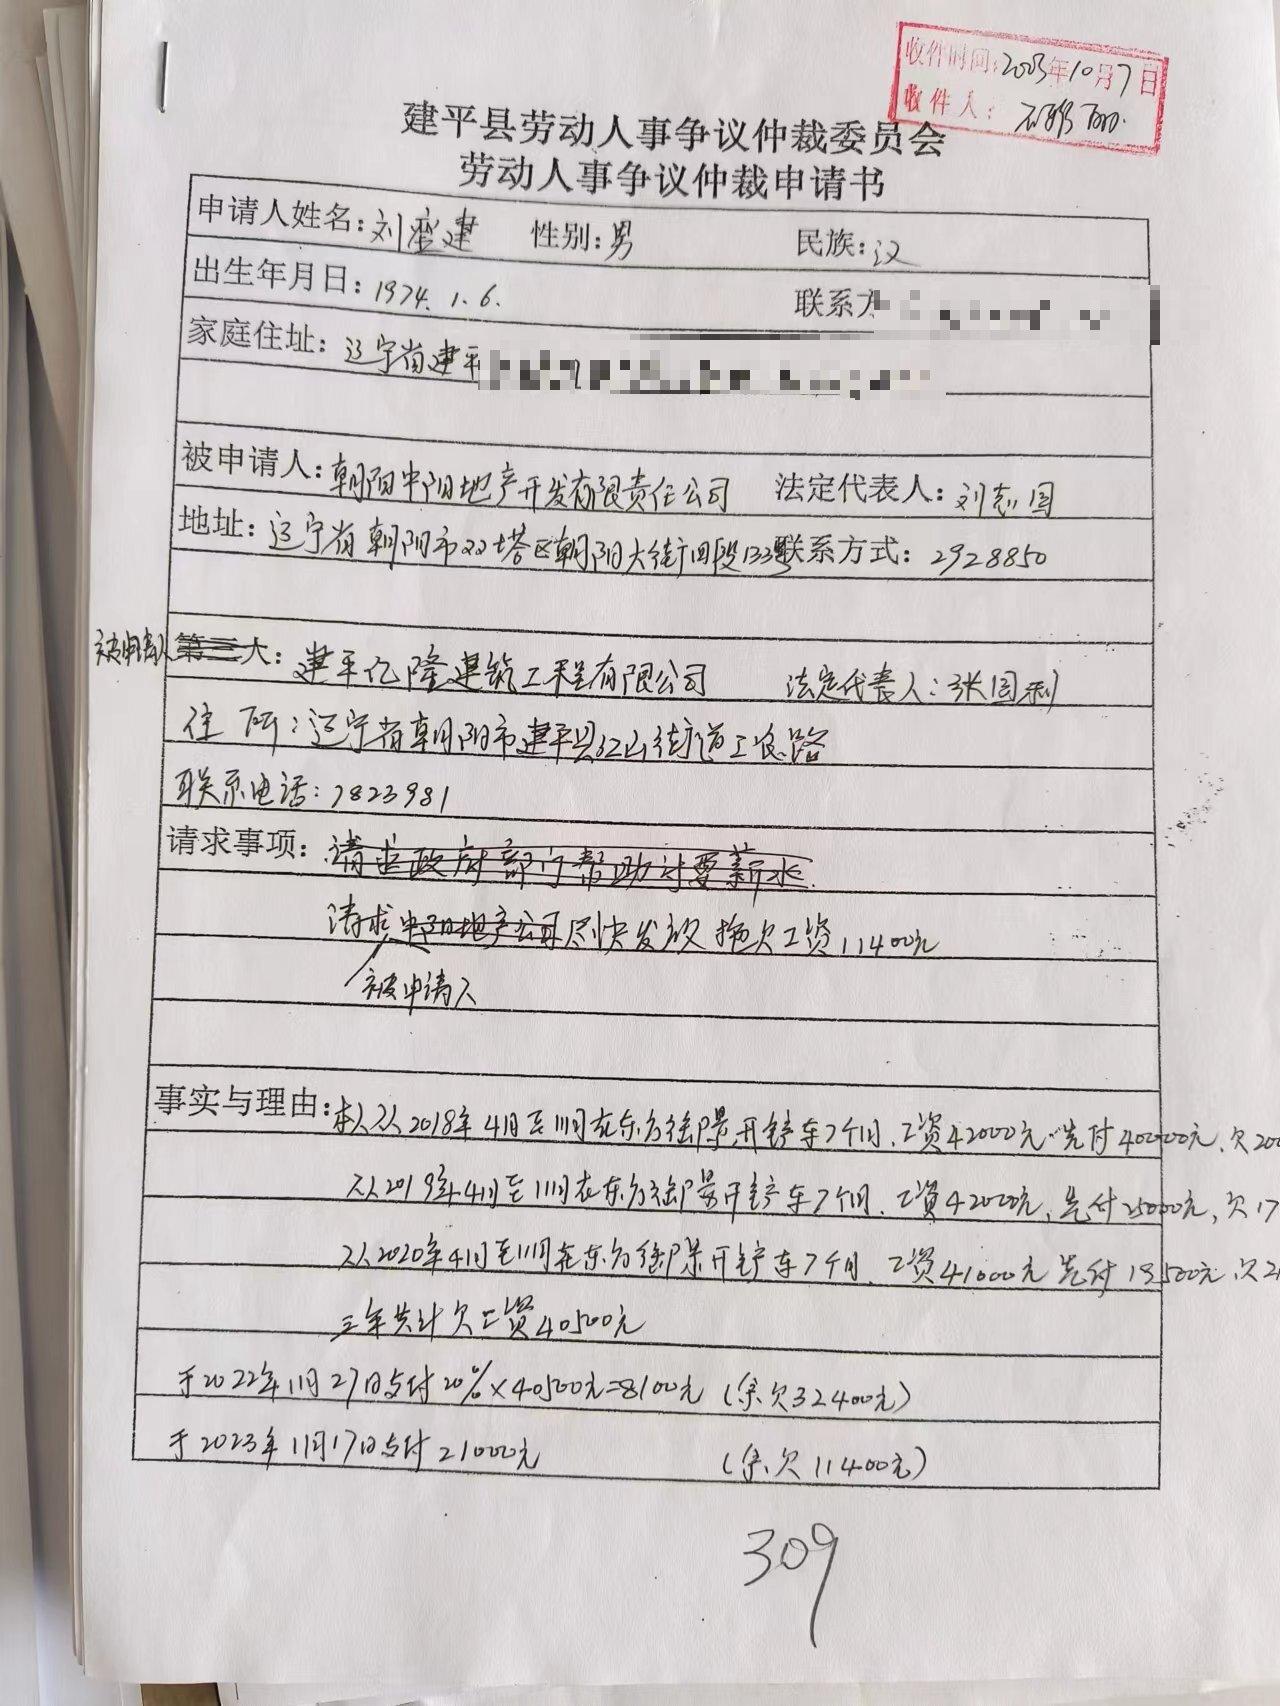 收件时间：2023年10月7日
收件人：
建平县劳动人事争议仲裁委员会
劳动人事争议仲裁申请书
申请人姓名：刘建 性别：男 民族：汉
出生年月日：1974.1.6. 联系方
家庭住址：辽宁省建平
被申请人：朝阳中阳地产开发有限责任公司 法定代表人：刘志国
地址：辽宁省朝阳市双塔区朝阳大街四段133号 联系方式：2928850
被申请人 第三人：建平亿隆建筑工程有限公司 法定代表人：张国利
住所：辽宁省朝阳市建平县红山街道工农路
联系电话：7823981
请求事项：请求政府部门帮助讨要薪水.
请求中阳地产公司尽快发放拖欠工资11400元
被申请人
事实与理由：本人从2018年4月至11月在东方御景开铲车7个月.工资42000元.先付40000元.欠200
从2019年4月至11月在东方御景开铲车7个月.工资42000元，先付25000元，欠17
从2020年4月至11月在东方御景开铲车7个月.工资41000元先付19500元.欠2
三年共计欠工资40500元
于2022年11月27日支付20%×40500元=8100元（余欠32400元）
于2023年11月17日支付21000元 （余欠11400元）
309